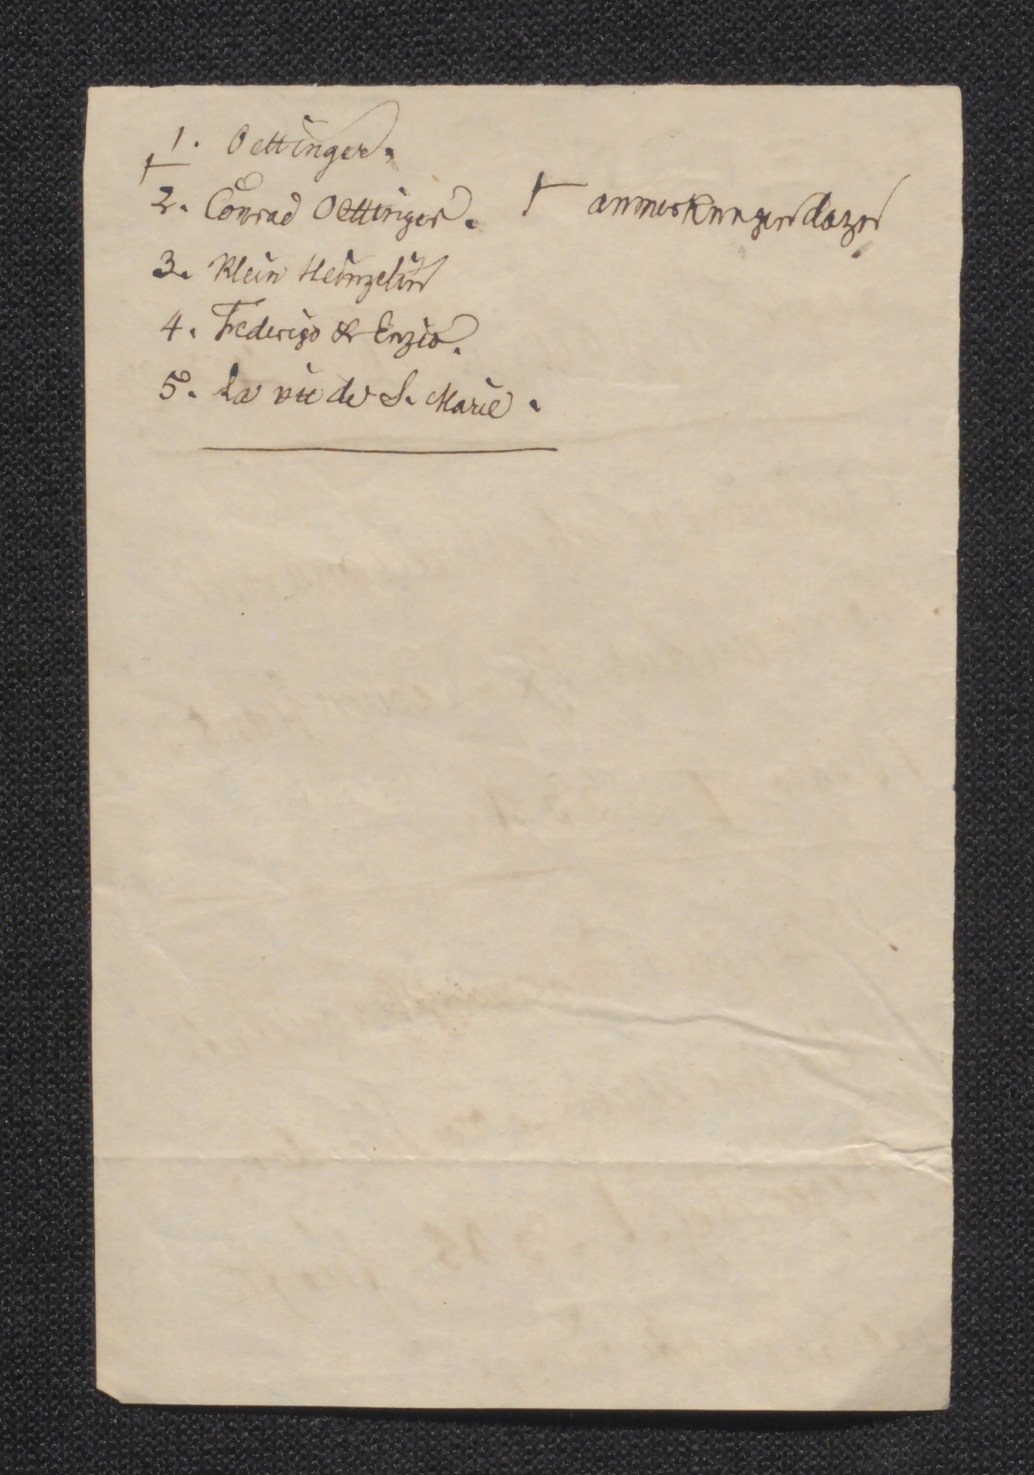 1. Oettinger.
†
2. Conrad Oettinger. † anmerkungen dazu
3. Klein Heinzelin
4. Frederigo & Enzio.
5. La vie de S. Marie.